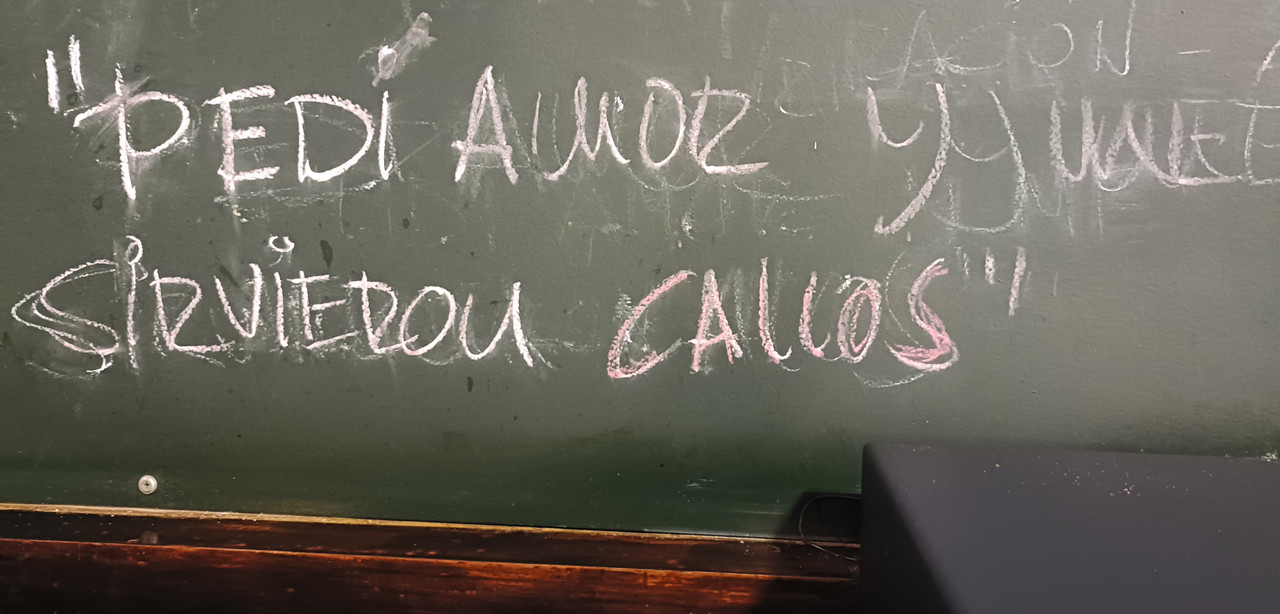 "PEDÍ AMOR Y
SIRVIERON CALLOS"